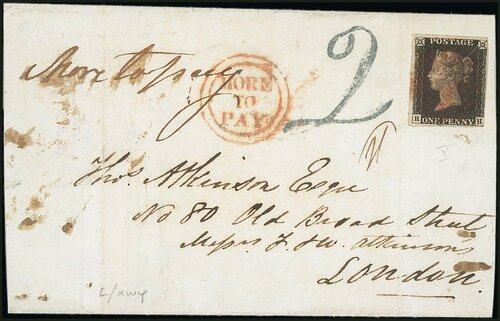 POSTAGE
R H
ONE PENNY
More to pay
MORE
TO
PAY
2
Thos. Atkinson Esqre
No 80 Old Broad Street
Messrs J. & W. Atkinson's
London.